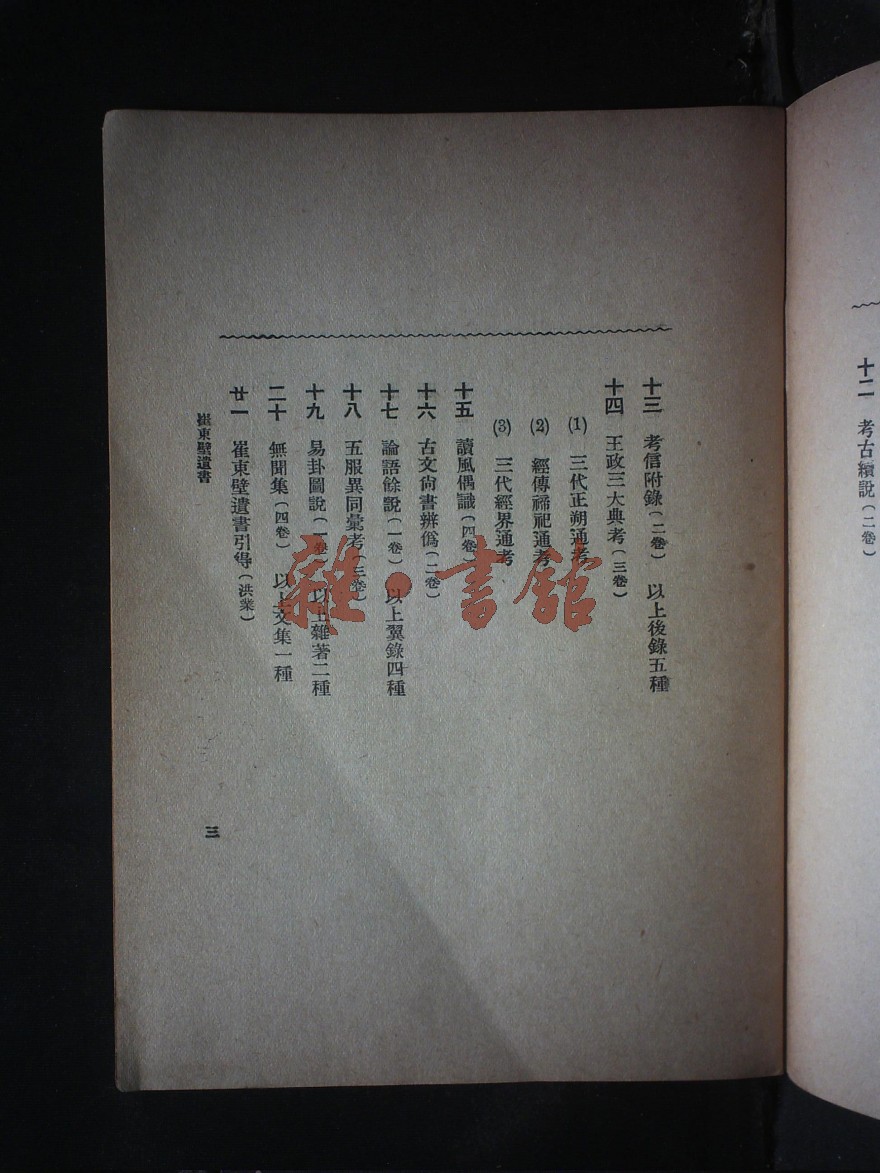 十二 考古續說(二卷)
十三 考信附錄(二卷) 以上後錄五種
十四 王政三大典考(三卷)
(1) 三代正朔通考
(2) 經傳禘祀通考
(3) 三代經界通考
十五 讀風偶識(四卷)
十六 古文尙書辨僞(二卷)
十七 論語餘說(一卷) 以上翼錄四種
十八 五服異同彙考(三卷)
十九 易卦圖說(一卷) 以上雜著二種
二十 無聞集(四卷) 以上文集一種
廿一 崔東壁遺書引得(洪業)
崔東壁遺書
三
雜·書館